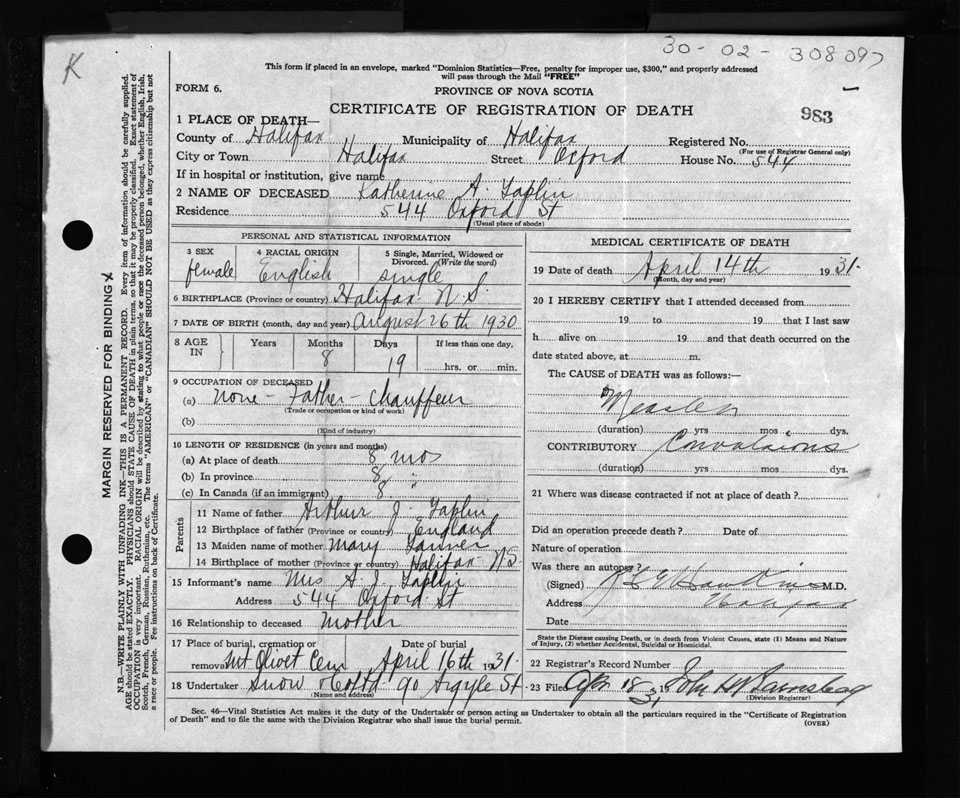 30-02-308097
K
This form if placed in an envelope, marked "Dominion Statistics—Free, penalty for improper use, $300," and properly addressed
will pass through the Mail "FREE"
FORM 6.
PROVINCE OF NOVA SCOTIA
CERTIFICATE OF REGISTRATION OF DEATH
983
1 PLACE OF DEATH—
County of Halifax Municipality of Halifax Registered No.
(For use of Registrar General only)
City or Town Halifax Street Oxford House No. 544
If in hospital or institution, give name
2 NAME OF DECEASED Katherine A. Taplin
Residence 544 Oxford St
(Usual place of abode)
PERSONAL AND STATISTICAL INFORMATION
3 SEX 4 RACIAL ORIGIN 5 Single, Married, Widowed or
Divorced. (Write the word)
female English single
6 BIRTHPLACE (Province or country) Halifax N.S.
7 DATE OF BIRTH (month, day and year) August 26th 1930
8 AGE IN Years Months Days If less than one day,
8 19 hrs. or min.
9 OCCUPATION OF DECEASED
(a) none - Father - Chauffeur
(Trade or occupation or kind of work)
(b)
(Kind of industry)
10 LENGTH OF RESIDENCE (in years and months)
(a) At place of death 8 mos
(b) In province 8 "
(c) In Canada (if an immigrant) 8
Parents
11 Name of father Arthur J. Taplin
12 Birthplace of father (Province or country) England
13 Maiden name of mother Mary Tanner
14 Birthplace of mother (Province or country) Halifax N.S.
15 Informant's name Mrs A. J. Taplin
Address 544 Oxford St
16 Relationship to deceased mother
17 Place of burial, cremation or Date of burial
removal Mt Olivet Cem April 16th 1931.
18 Undertaker Snow & Co Ltd 90 Argyle St.
(Name and address)
MEDICAL CERTIFICATE OF DEATH
19 Date of death April 14th 1931.
(Month, day and year)
20 I HEREBY CERTIFY that I attended deceased from
19 to 19 that I last saw
h alive on 19 and that death occurred on the
date stated above, at m.
The CAUSE of DEATH was as follows:—
Measles
(duration) yrs mos dys.
CONTRIBUTORY Convulsions
(duration) yrs mos dys.
21 Where was disease contracted if not at place of death?
Did an operation precede death? Date of
Nature of operation
Was there an autopsy?
(Signed) Hawkins M.D.
Address Halifax
Date
State the Disease causing Death, or in death from Violent Causes, state (1) Means and Nature
of Injury, (2) whether Accidental, Suicidal or Homicidal.
22 Registrar's Record Number
23 Filed Apr 18 31 19 John
(Division Registrar)
Sec. 46—Vital Statistics Act makes it the duty of the Undertaker or person acting as Undertaker to obtain all the particulars required in the "Certificate of Registration
of Death" and to file the same with the Division Registrar who shall issue the burial permit.
(OVER)
MARGIN RESERVED FOR BINDING
N.B.—WRITE PLAINLY WITH UNFADING INK—THIS IS A PERMANENT RECORD. Every item of information should be carefully supplied.
AGE should be stated EXACTLY. PHYSICIANS should STATE CAUSE OF DEATH in plain terms, so that it may be properly classified. Exact statement of
OCCUPATION is very important. RACIAL ORIGIN will be described by stating to what people or race the deceased person belonged, whether English, Irish,
Scotch, French, German, Russian, Ruthenian, etc. The terms "AMERICAN" or "CANADIAN" SHOULD NOT BE USED as they express citizenship but not
a race or people. Fee instructions on back of Certificate.